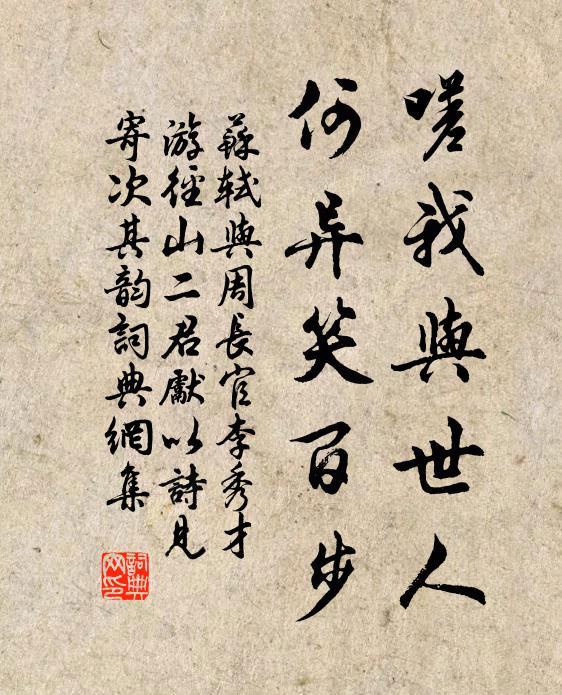 嗟我與世人
何异笑百步
蘇軾與周長官李秀才
游徑山二君獻以詩見
寄次其韵詞典網集
詞典
网印